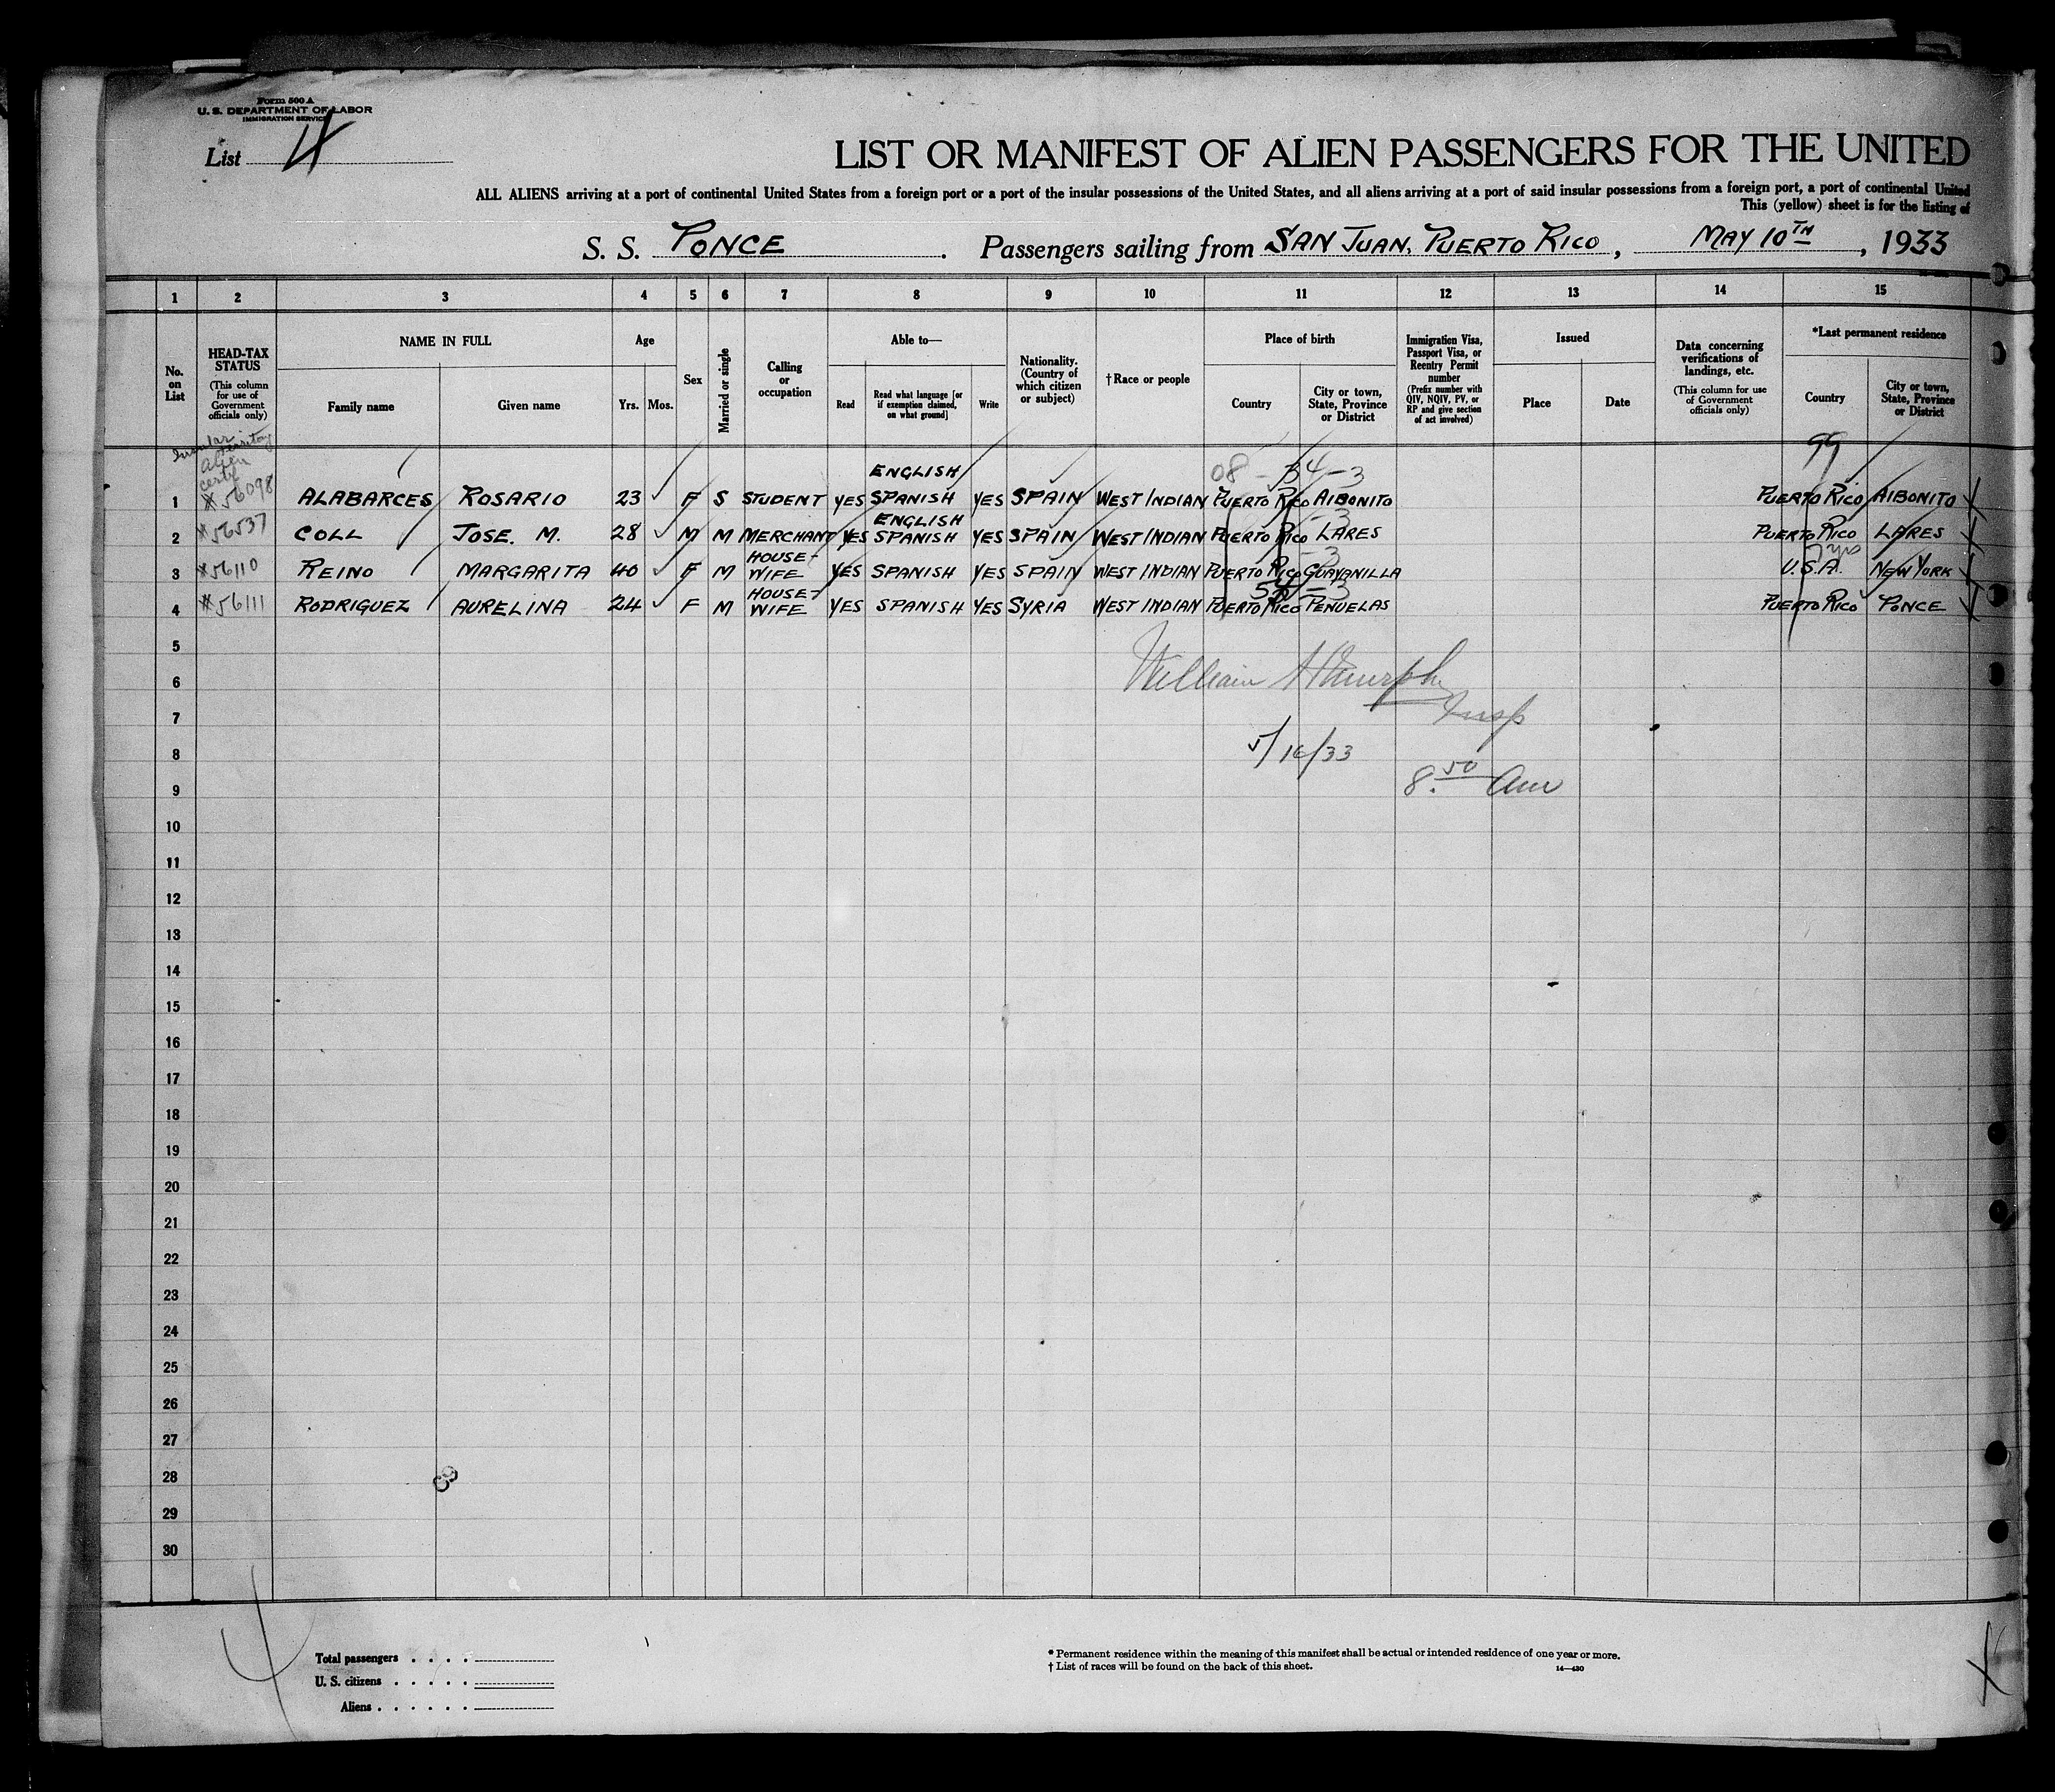 Form 500 A
U. S. DEPARTMENT OF LABOR
IMMIGRATION SERVICE
List 4
LIST OR MANIFEST OF ALIEN PASSENGERS FOR THE UNITED
ALL ALIENS arriving at a port of continental United States from a foreign port or a port of the insular possessions of the United States, and all aliens arriving at a port of said insular possessions from a foreign port, a port of continental United
This (yellow) sheet is for the listing of
S. S. PONCE. Passengers sailing from SAN JUAN, PUERTO RICO, MAY 10TH, 1933
1 2 3 4 5 6 7 8 9 10 11 12 13 14 15
No. on List
HEAD-TAX STATUS
(This column for use of Government officials only)
NAME IN FULL
Family name
Given name
Age
Yrs. Mos.
Sex
Married or single
Calling or occupation
Able to—
Read
Read what language [or if exemption claimed, on what ground]
Write
Nationality. (Country of which citizen or subject)
†Race or people
Place of birth
Country
City or town, State, Province or District
Immigration Visa, Passport Visa, or Reentry Permit number
(Prefix number with QIV, NQIV, PV, or RP and give section of act involved)
Issued
Place
Date
Data concerning verifications of landings, etc.
(This column for use of Government officials only)
*Last permanent residence
Country
City or town, State, Province or District
Insular territory alien certf
08 - 34 - 3
99
1 #56098 ALABARCES ROSARIO 23 F S STUDENT YES ENGLISH SPANISH YES SPAIN WEST INDIAN PUERTO RICO AIBONITO PUERTO RICO AIBONITO
2 #56537 COLL JOSE. M. 28 M M MERCHANT YES ENGLISH SPANISH YES SPAIN WEST INDIAN PUERTO RICO LARES - 3 PUERTO RICO LARES
3 #56110 REINO MARGARITA 40 F M HOUSE-WIFE YES SPANISH YES SPAIN WEST INDIAN PUERTO RICO GUAYANILLA - 3 U.S.A. 7 yrs NEW YORK
4 #56111 RODRIGUEZ AURELINA 24 F M HOUSE-WIFE YES SPANISH YES SYRIA WEST INDIAN PUERTO RICO PENUELAS - 3 PUERTO RICO PONCE
5
6 William
7 Insp
8 5/16/33
9 8.50 Am
10
11
12
13
14
15
16
17
18
19
20
21
22
23
24
25
26
27
28
29
30
4
Total passengers . . . .
U. S. citizens . . . . .
Aliens . . . . . .
* Permanent residence within the meaning of this manifest shall be actual or intended residence of one year or more.
† List of races will be found on the back of this sheet.
14—430